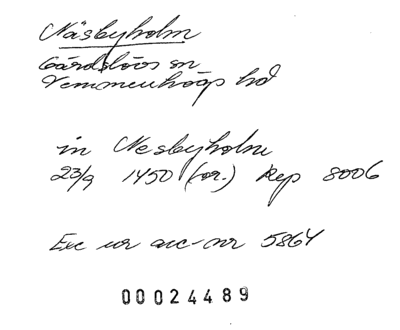 Näsbyholm
Gärdslövs sn
Vemmenhögs hd
in Nesbyholm
23/9 1450 (or.) Rep 8006
Exc ur acc-nr 5864
00024489